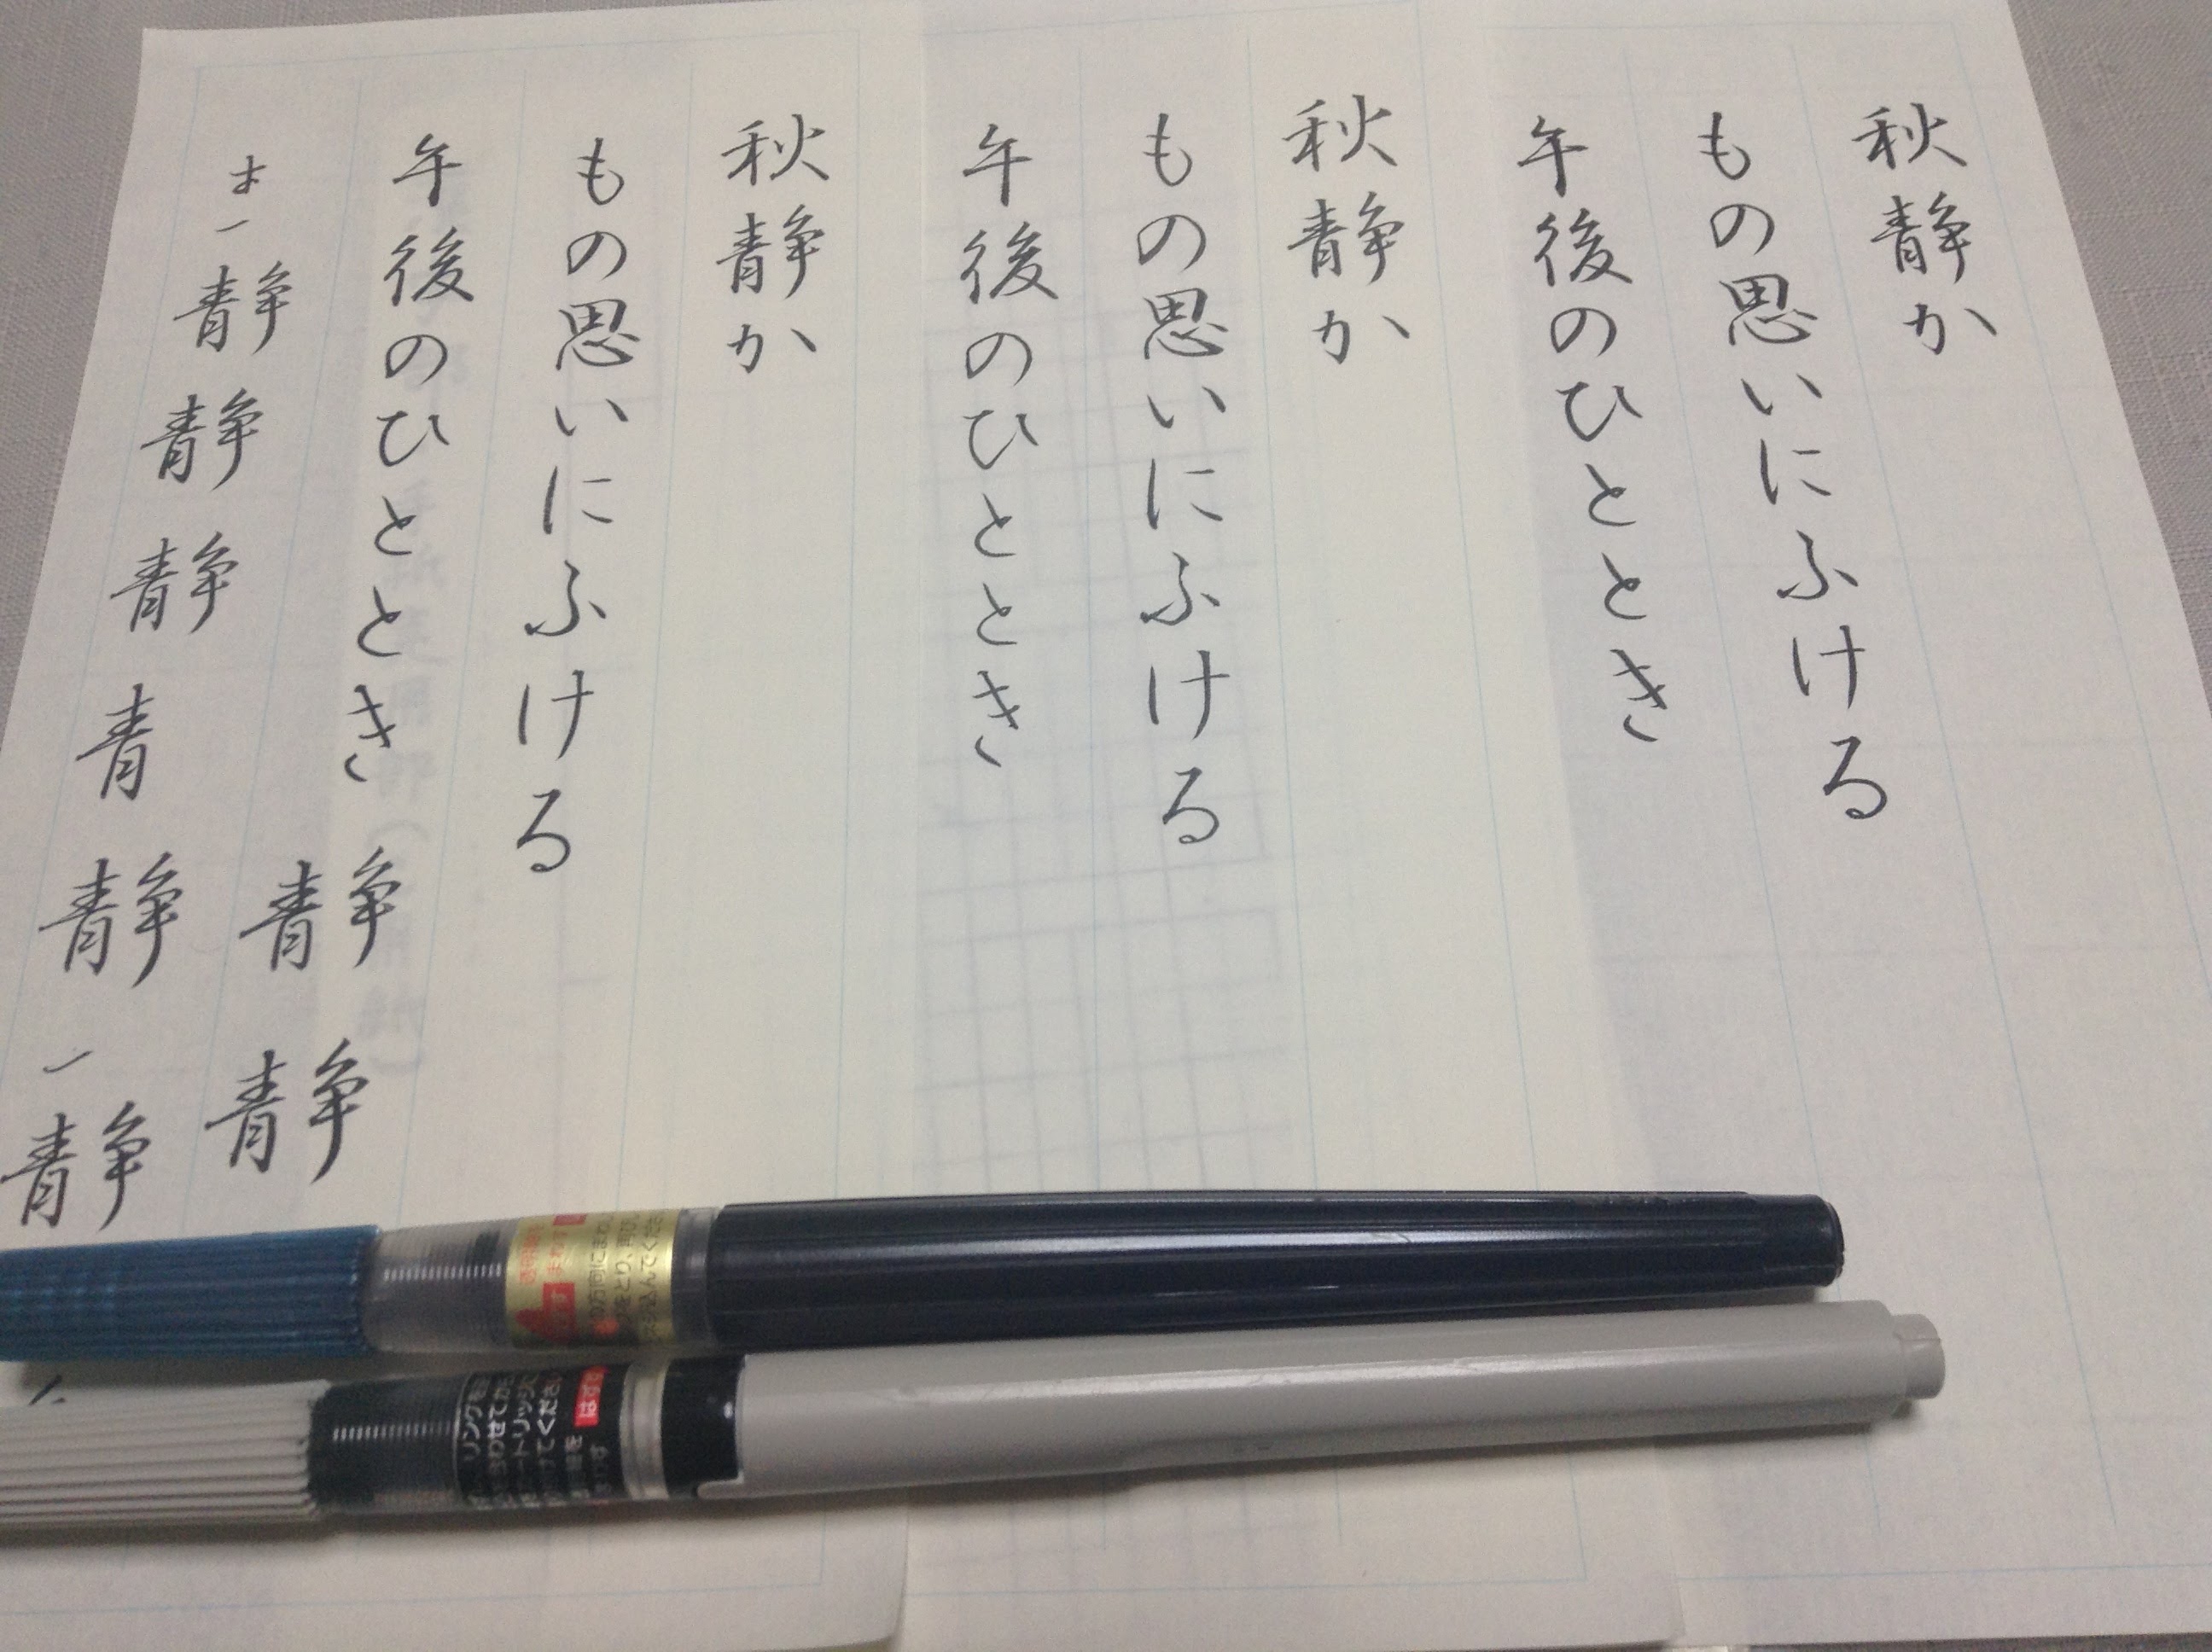 秋静か
もの思いにふける
午後のひととき
秋静か
もの思いにふける
午後のひととき
秋静か
もの思いにふける
午後のひととき
静
静
静
静
青
静
一
静
まわす
はずす